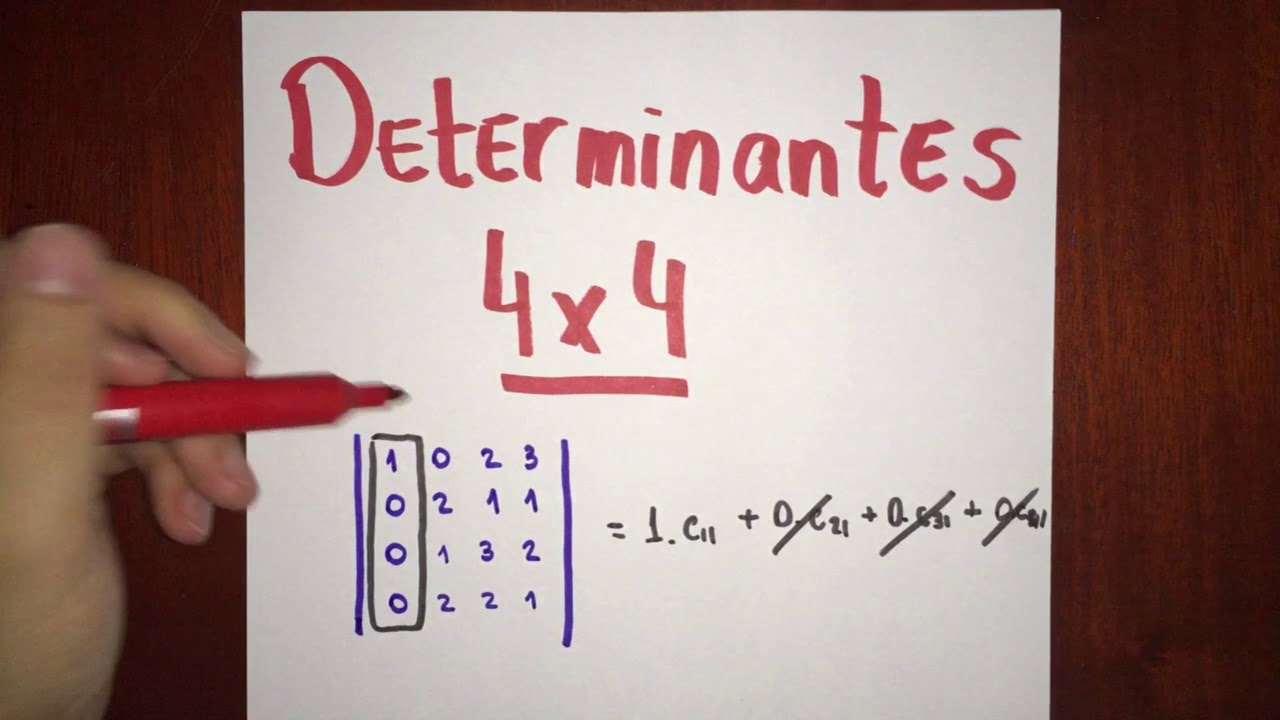 DETERminantES
4x4
1 0 2 3
0 2 1 1
0 1 3 2
0 2 2 1
= 1. C11 + 0.C21 + 0.C31 + 0C41